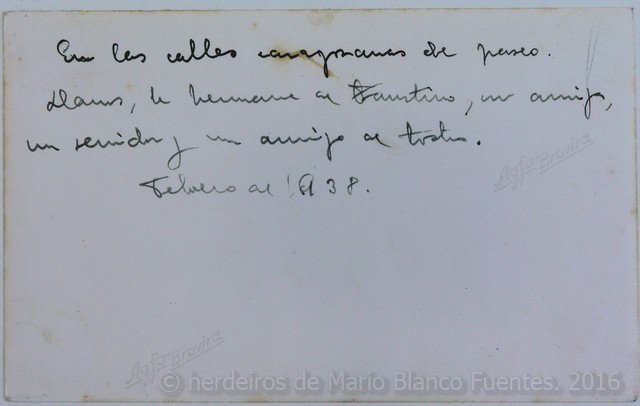 En las calles zaragozanas de paseo.
Llanos, la hermana de Faustino, un amigo,
un servidor y un amigo de
Febrero de 1938.
Agfa Brovira
Agfa Brovira
© herdeiros de Mario Blanco Fuentes. 2016